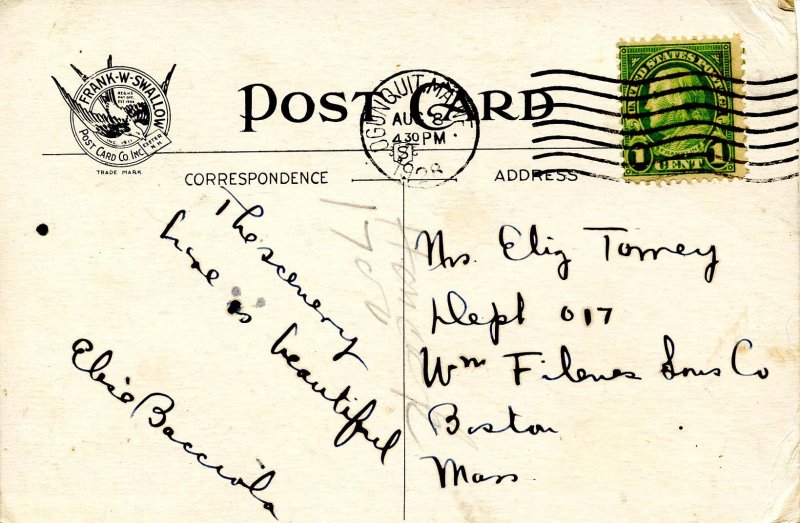 FRANK-W-SWALLOW
POST CARD CO INC.
EXETER
N.H.
TRADE MARK
POST CARD
OGUNQUIT, MAINE
AUG 8
4 30 PM
S
UNITED STATES POSTAGE
1 CENT 1
CORRESPONDENCE
ADDRESS
The scenery
here is beautiful
Elsie Bacciola
1700
Mrs. Eliz Tomey
Dept 017
Wm Filenes Sons Co
Boston
Mass.